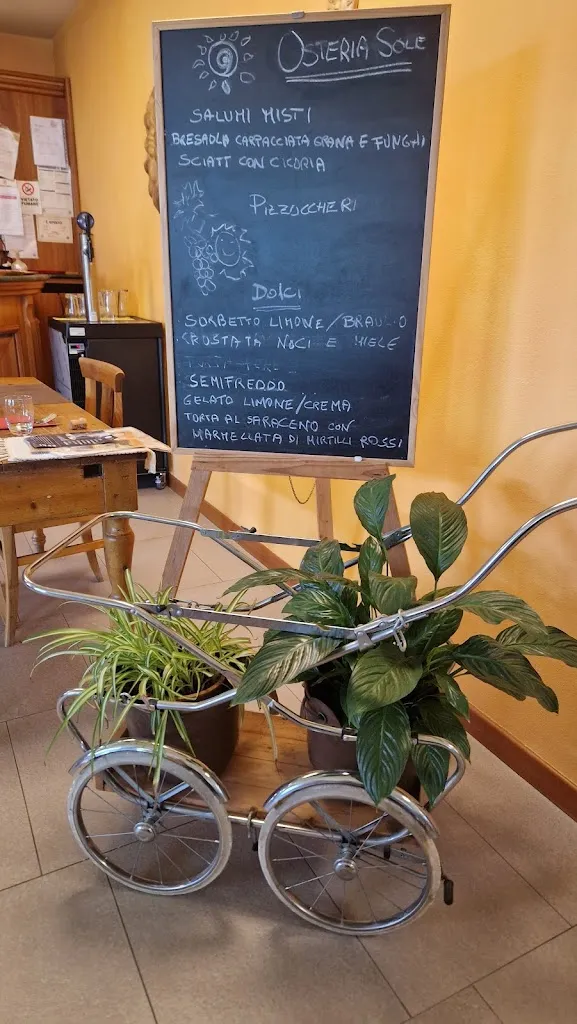 OSTERIA SOLE
SALUMI MISTI
BRESAOLA CARPACCIATA GRANA E FUNGHI
SCIATT CON CICORIA
PIZZOCCHERI
DOLCI
SORBETTO LIMONE/BRAULIO
CROSTATA NOCI E MIELE
SEMIFREDDO
GELATO LIMONE/CREMA
TORTA AL SARACENO CON
MARMELLATA DI MIRTILLI ROSSI